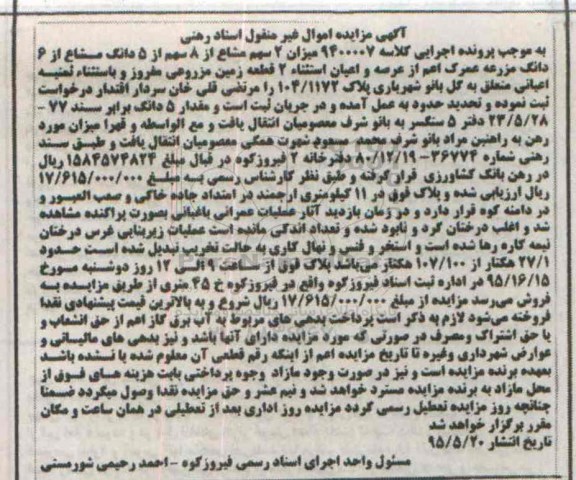 آگهی مزایده اموال غیر منقول اسناد رهنی
به موجب پرونده اجرایی کلاسه ۹۴۰۰۰۰۷ میزان ۲ سهم مشاع از ۸ سهم از ۵ دانگ مشاع از ۶
دانگ مزرعه عمرک اعم از عرصه و اعیان استثناء ۲ قطعه زمین مزروعی مفروز و باستثناء ثمنیه
اعیانی متعلق به گل بانو شهریاری پلاک ۱۰۴/۱۱۷۲ را مرتضی قلی خان سردار اقتدار درخواست
ثبت نموده و تحدید حدود به عمل آمده و در جریان ثبت است و مقدار ۵ دانگ برابر سند ۷۷ -
۲۳/۵/۲۸ دفتر ۵ سنگسر به بانو شرف معصومیان انتقال یافت و مع الواسطه و قهرا میزان مورد
رهن به راهنین مراد بانو شرف محمد مسعود شهرت همگی معصومیان انتقال یافت و طبق سند
رهنی شماره ۳۶۷۷۴ - ۸۰/۱۲/۱۹ دفترخانه ۲ فیروزکوه در قبال مبلغ ۱۵۸۴۵۷۴۸۲۴ ریال
در رهن بانک کشاورزی قرار گرفته و طبق نظر کارشناس رسمی به مبلغ ۱۷/۶۱۵/۰۰۰/۰۰۰
ریال ارزیابی شده و پلاک فوق در ۱۱ کیلومتری ارجمند در امتداد جاده خاکی و صعب العبور و
در دامنه کوه قرار دارد و در زمان بازدید آثار عملیات عمرانی باغبانی بصورت پراکنده مشاهده
شد و اغلب درختان گرد و نابود شده و تعداد اندکی مانده است عملیات زیربنایی غرس درختان
نیمه کاره رها شده است و استخر و فنس و نهال کاری به حالت تخریب تبدیل شده است حدود
۲۷/۱ هکتار از ۱۰۷/۱۰۰ هکتار می‌باشد پلاک فوق از ساعت ۹ الی ۱۲ روز دوشنبه مورخ
۹۵/۱۶/۱۵ در اداره ثبت اسناد فیروزکوه واقع در فیروزکوه خ ۴۵ متری از طریق مزایده به
فروش می‌رسد مزایده از مبلغ ۱۷/۶۱۵/۰۰۰/۰۰۰ ریال شروع و به بالاترین قیمت پیشنهادی نقدا
فروخته می‌شود لازم به ذکر است پرداخت بدهی های مربوط به آب برق گاز اعم از حق انشعاب و
یا حق اشتراک ومصرف در صورتی که مورد مزایده دارای آنها باشد و نیز بدهی های مالیاتی و
عوارض شهرداری وغیره تا تاریخ مزایده اعم از اینکه رقم قطعی آن معلوم شده یا نشده باشد
بعهده برنده مزایده است و نیز در صورت وجود مازاد وجوه پرداختی بابت هزینه های فوق از
محل مازاد به برنده مزایده مسترد خواهد شد و نیم عشر و حق مزایده نقدا وصول میگردد ضمنا
چنانچه روز مزایده تعطیل رسمی گردد مزایده روز اداری بعد از تعطیلی در همان ساعت و مکان
مقرر برگزار خواهد شد
تاریخ انتشار ۹۵/۵/۲۰
مسئول واحد اجرای اسناد رسمی فیروزکوه - احمد رحیمی شورمستی